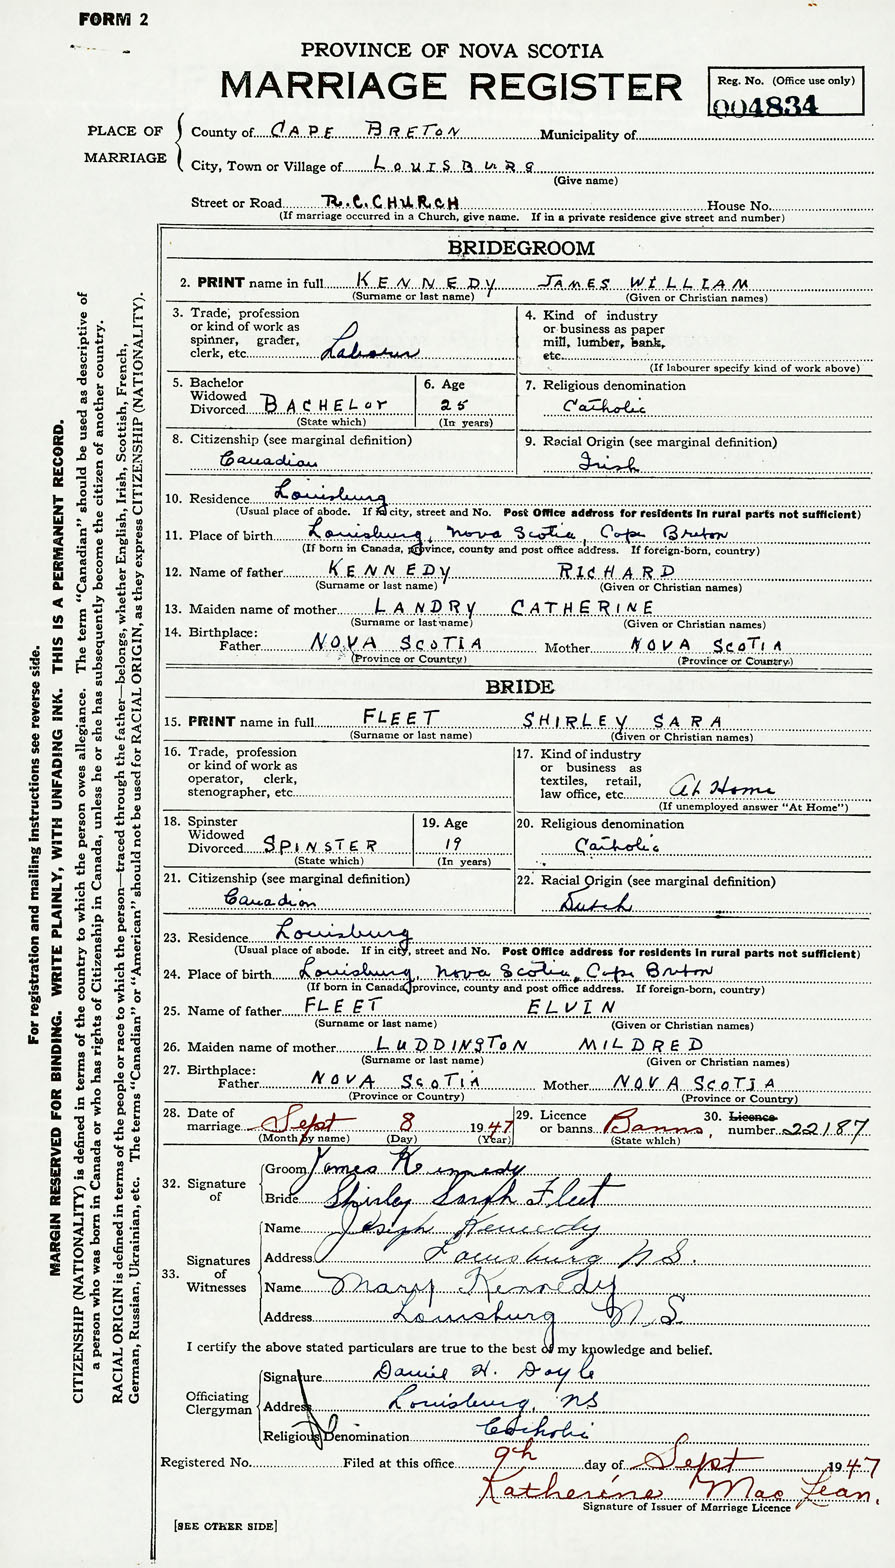 FORM 2
PROVINCE OF NOVA SCOTIA
MARRIAGE REGISTER
Reg. No. (Office use only)
004834
PLACE OF MARRIAGE
County of CAPE BRETON Municipality of
City, Town or Village of LOUISBURG
(Give name)
Street or Road R.C. CHURCH House No.
(If marriage occurred in a Church, give name. If in a private residence give street and number)
BRIDEGROOM
2. PRINT name in full KENNEDY JAMES WILLIAM
(Surname or last name) (Given or Christian names)
3. Trade, profession
or kind of work as
spinner, grader,
clerk, etc. Labour
4. Kind of industry
or business as paper
mill, lumber, bank,
etc.
(If labourer specify kind of work above)
5. Bachelor
Widowed
Divorced BACHELOr
(State which)
6. Age
25
(In years)
7. Religious denomination
Catholic
8. Citizenship (see marginal definition)
Canadian
9. Racial Origin (see marginal definition)
Irish
10. Residence Louisburg
(Usual place of abode. If in city, street and No. Post Office address for residents in rural parts not sufficient)
11. Place of birth Louisburg, Nova Scotia, Cape Breton
(If born in Canada, province, county and post office address. If foreign-born, country)
12. Name of father KENNEDY RICHARD
(Surname or last name) (Given or Christian names)
13. Maiden name of mother LANDRY CATHERINE
(Surname or last name) (Given or Christian names)
14. Birthplace:
Father NOVA SCOTIA Mother NOVA SCOTIA
(Province or Country) (Province or Country)
BRIDE
15. PRINT name in full FLEET SHIRLEY SARA
(Surname or last name) (Given or Christian names)
16. Trade, profession
or kind of work as
operator, clerk,
stenographer, etc.
17. Kind of industry
or business as
textiles, retail,
law office, etc. At Home
(If unemployed answer "At Home")
18. Spinster
Widowed
Divorced SPINSTER
(State which)
19. Age
19
(In years)
20. Religious denomination
Catholic
21. Citizenship (see marginal definition)
Canadian
22. Racial Origin (see marginal definition)
Dutch
23. Residence Louisburg
(Usual place of abode. If in city, street and No. Post Office address for residents in rural parts not sufficient)
24. Place of birth Louisburg, Nova Scotia, Cape Breton
(If born in Canada, province, county and post office address. If foreign-born, country)
25. Name of father FLEET ELVIN
(Surname or last name) (Given or Christian names)
26. Maiden name of mother LUDDINGTON MILDRED
(Surname or last name) (Given or Christian names)
27. Birthplace:
Father NOVA SCOTIA Mother NOVA SCOTIA
(Province or Country) (Province or Country)
28. Date of
marriage Sept 8 1947
(Month by name) (Day) (Year)
29. Licence
or banns Banns,
(State which)
30. Licence
number 22187
32. Signature of
Groom James Kennedy
Bride Shirley Sarah Fleet
33. Signatures of Witnesses
Name Joseph Kennedy
Address Louisburg N.S.
Name Mary Kennedy
Address Louisburg N.S.
I certify the above stated particulars are true to the best of my knowledge and belief.
Officiating Clergyman
Signature Daniel H. Doyle
Address Louisburg, NS
Religious Denomination Catholic
Registered No. Filed at this office 9th day of Sept 1947
Katherine MacLean.
Signature of Issuer of Marriage Licence
[SEE OTHER SIDE]
For registration and mailing instructions see reverse side.
MARGIN RESERVED FOR BINDING. WRITE PLAINLY, WITH UNFADING INK. THIS IS A PERMANENT RECORD.
CITIZENSHIP (NATIONALITY) is defined in terms of the country to which the person owes allegiance. The term "Canadian" should be used as descriptive of
a person who was born in Canada or who has rights of Citizenship in Canada, unless he or she has subsequently become the citizen of another country.
RACIAL ORIGIN is defined in terms of the people or race to which the person—traced through the father—belongs, whether English, Irish, Scottish, French,
German, Russian, Ukrainian, etc. The terms "Canadian" or "American" should not be used for RACIAL ORIGIN, as they express CITIZENSHIP (NATIONALITY).